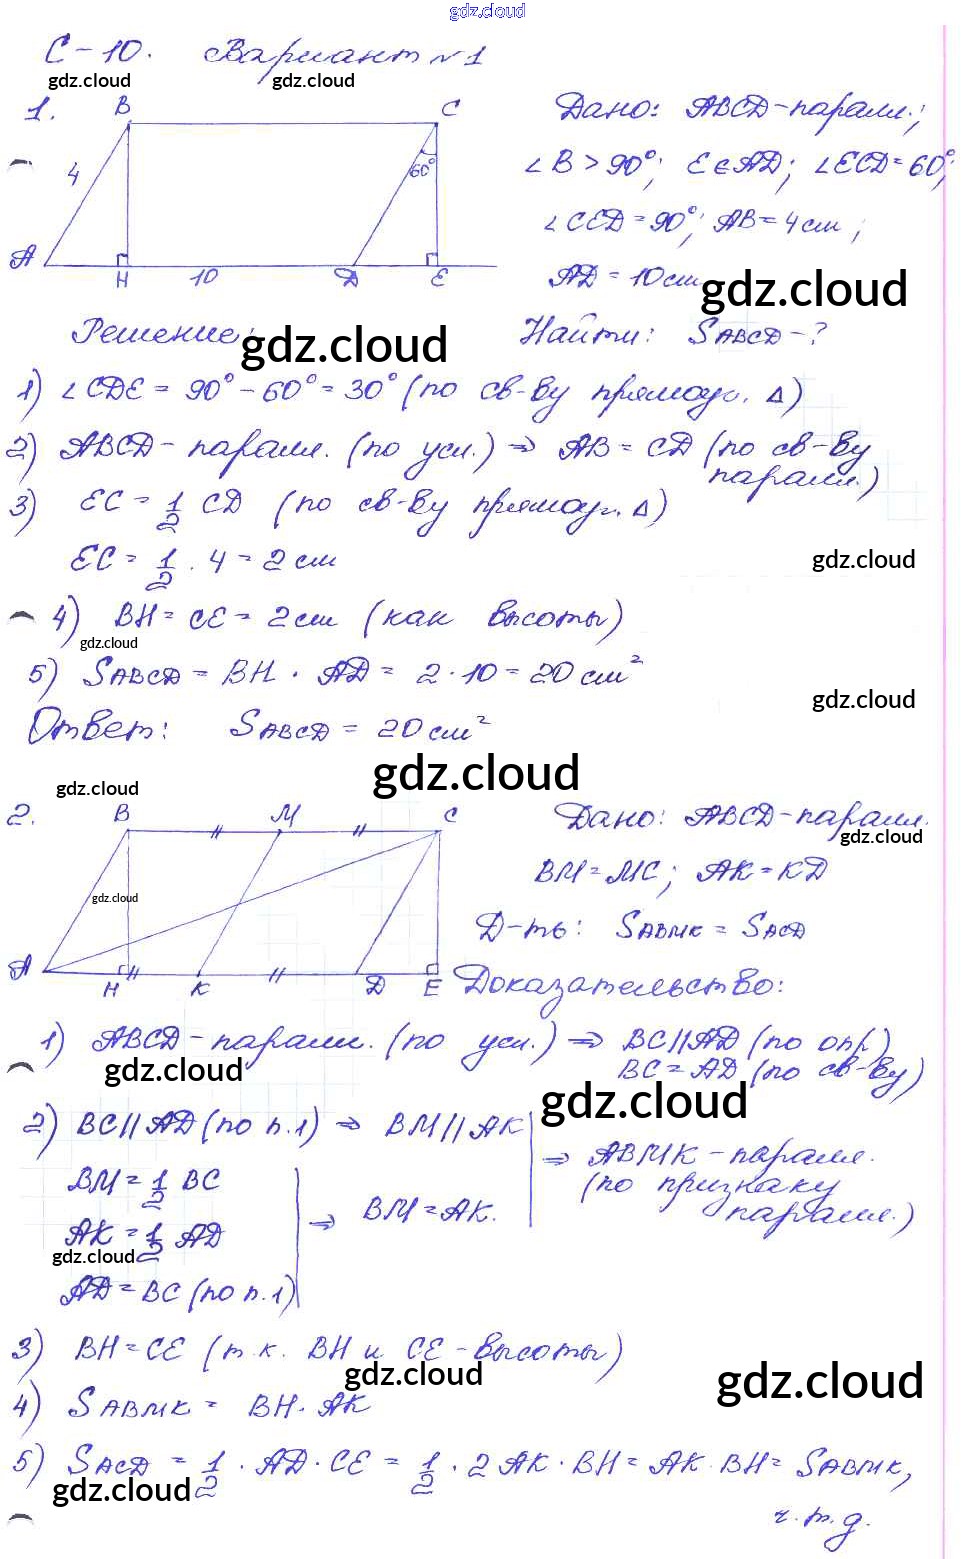 gdz.cloud
С-10. Вариант №1
gdz.cloud gdz.cloud
1. B C Дано: ABCD-паралл.;
4 60° ∠B > 90°; E∈AD; ∠ECD=60°;
∠CED=90°; AB=4см;
A H 10 D E AD=10см
gdz.cloud
Решение: gdz.cloud Найти: SABCD-?
1) ∠CDE = 90°-60°=30° (по св-ву прямоуг. Δ)
2) ABCD- паралл. (по усл.) ⇒ AB = CD (по св-ву
паралл.)
3) EC = 1/2 CD (по св-ву прямоуг. Δ)
EC = 1/2 · 4 = 2 см
gdz.cloud
4) BH = CE = 2см (как высоты)
gdz.cloud
5) SABCD = BH · AD = 2·10=20 см²
gdz.cloud
Ответ: SABCD = 20 см²
gdz.cloud
gdz.cloud
2. B M C Дано: ABCD-паралл.
gdz.cloud
BM=MC; AK=KD
gdz.cloud
Д-ть: SABMK = SACD
A H K D E Доказательство:
1) ABCD-паралл. (по усл.) ⇒ BC||AD (по опр.)
BC=AD (по св-ву)
gdz.cloud
gdz.cloud
2) BC||AD (по п.1) ⇒ BM||AK
⇒ ABMK-паралл.
(по признаку
паралл.)
BM=1/2 BC
AK=1/2 AD
⇒ BM=AK.
gdz.cloud
AD=BC (по п.1)
3) BH=CE (т.к. BH и CE-высоты)
gdz.cloud gdz.cloud
4) SABMK = BH·AK
5) SACD = 1/2 · AD·CE = 1/2 · 2AK·BH=AK·BH=SABMK,
gdz.cloud
ч.т.д.